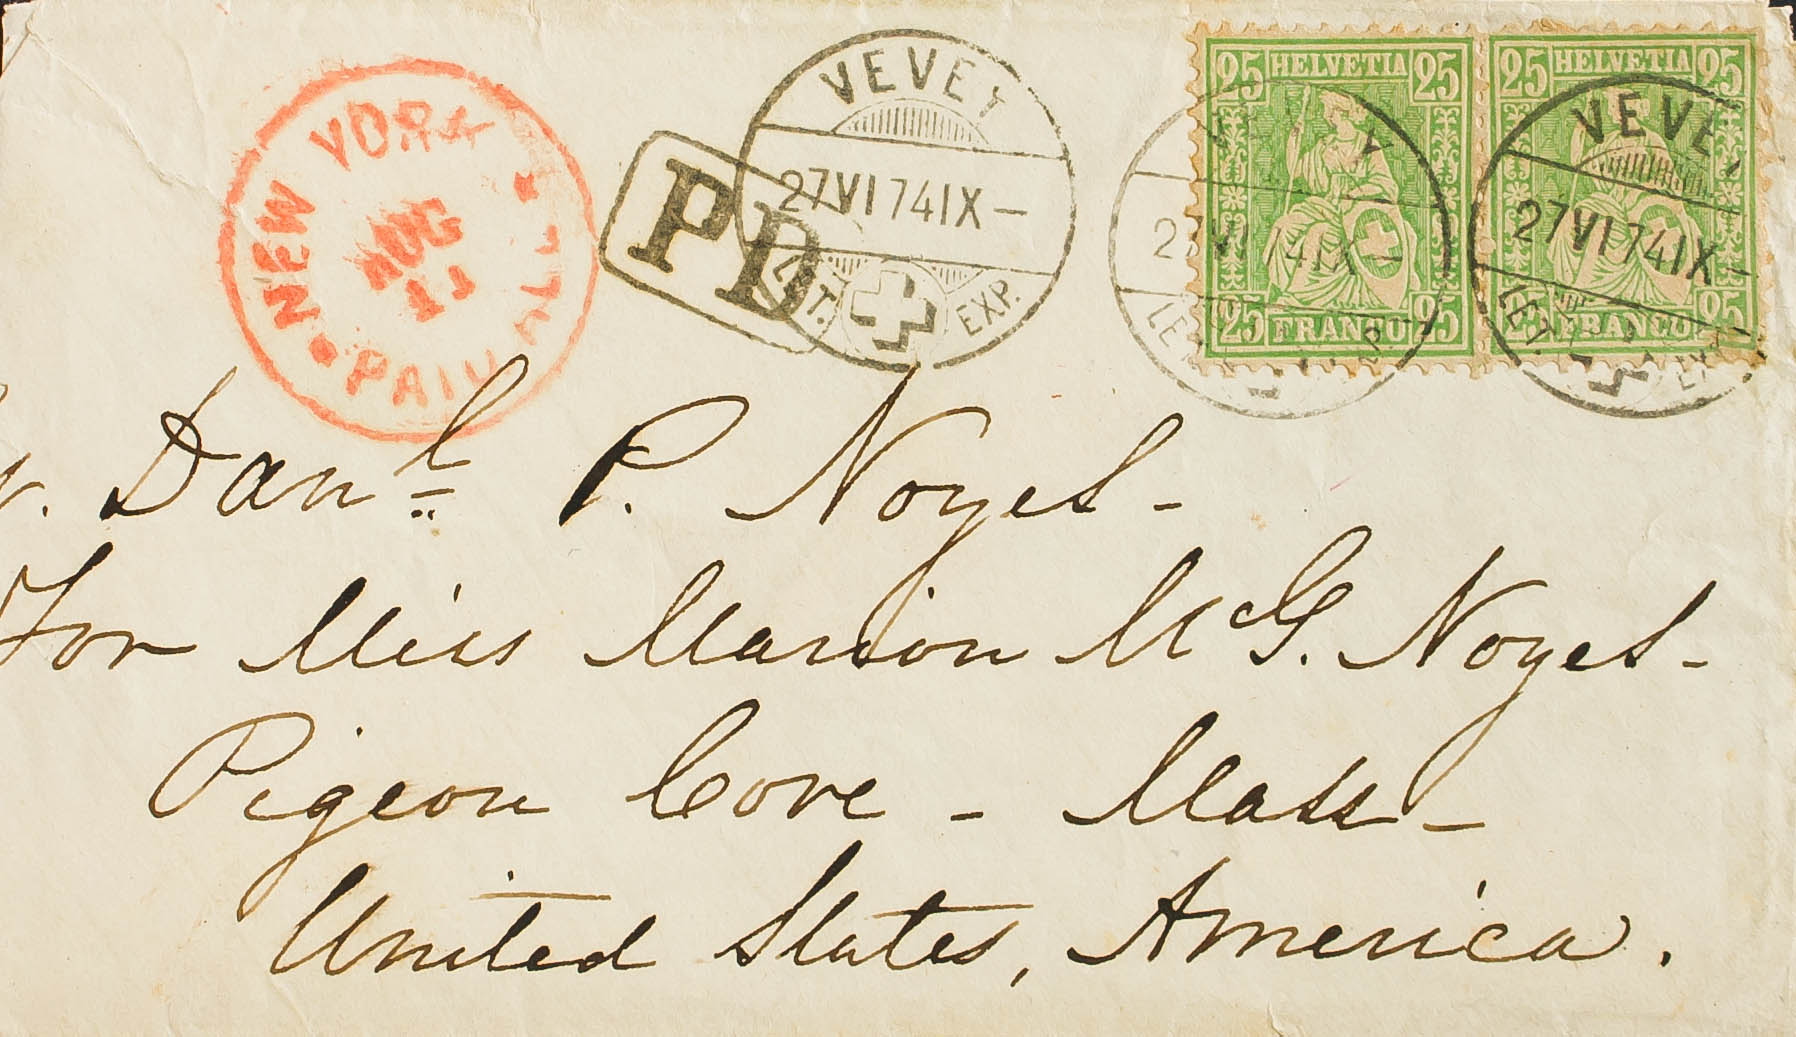 NEW YORK
AUG
11
PAID
PD
VEVEY
27 VI 74 IX –
LET. EXP.
25 HELVETIA 25
25 FRANCO 25
27 VI 74 IX –
25 HELVETIA 25
25 FRANCO 25
VEVEY
27 VI 74 IX –
LET. EXP.
Danl P. Noyes –
For Miss Marion McG. Noyes –
Pigeon Cove – Mass –
United States, America.